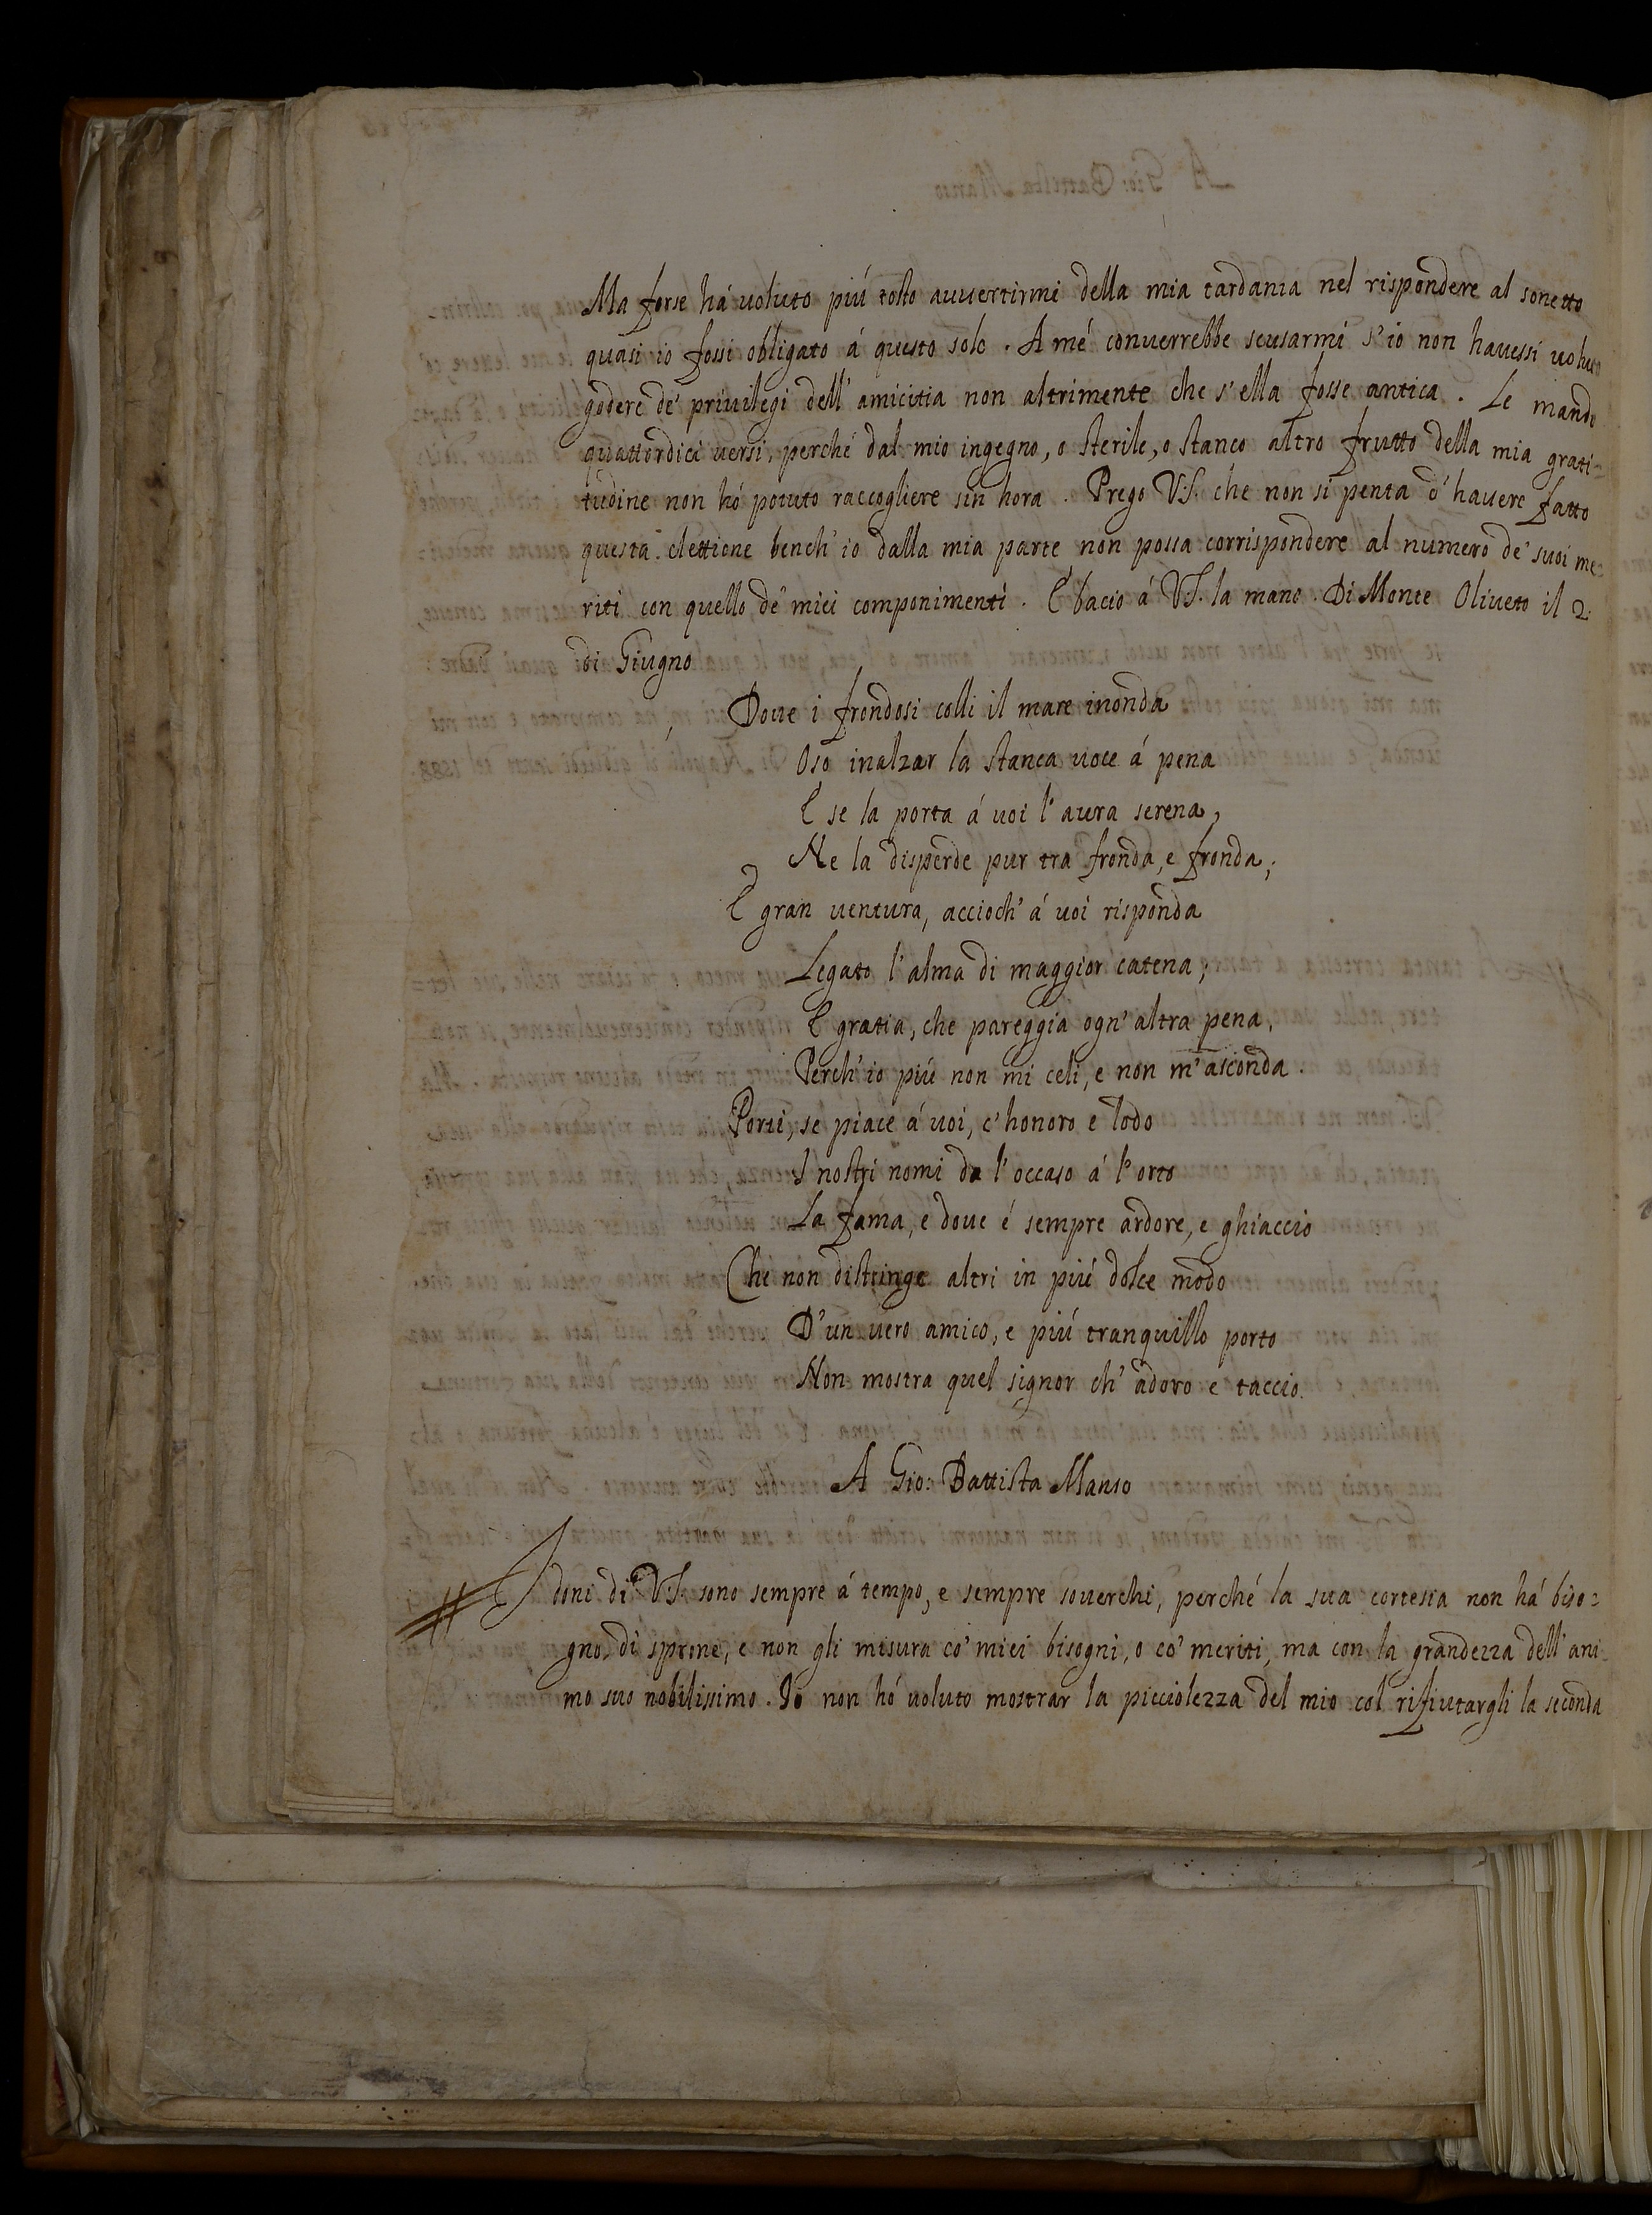 Ma forse há uoluto piú tosto auuertirmi della mia tardanza nel rispondere al sonetto
quasi io fossi obligato á questo solo . A mé conuerrebbe scusarmi s'io non hauessi uoluto
godere de' priuilegi dell' amicitia non altrimente che s'ella fosse antica . Le mando
quattordici uersi, perché dal mio ingegno, o sterile, o stanco altro frutto della mia grati=
tudine non hó potuto raccogliere sin hora . Prego V.S. che non si penta d'hauere fatto
questa elettione bench' io dalla mia parte non possa corrispondere al numero de' suoi me=
riti con quello de' miei componimenti . E bacio á V.S. la mano . Di Monte Oliueto il 2.
di Giugno
Doue i frondosi colli il mare inonda
Oso inalzar la stanca uoce á pena
E se la porta á uoi l'aura serena,
Ne la disperde pur tra fronda, e fronda;
É gran uentura, accioch' á uoi risponda
Legato l'alma di maggior catena;
E gratia, che pareggia ogn' altra pena,
Perch'io piú non mi celi, e non m'asconda .
Porti, se piace á uoi, c'honoro e lodo
I nostri nomi da l'occaso á l'orto
La fama, e doue é sempre ardore, e ghiaccio
Che non distringe altri in piú dolce modo
D'un uero amico, e piú tranquillo porto
Non mostra quel signor ch' adoro e taccio.
A Gio: Battista Manso
I doni di V.S. sono sempre á tempo, e sempre souerchi, perché la sua cortesia non há biso=
gno di sprone, e non gli misura co' miei bisogni, o co' meriti, ma con la grandezza dell'ani=
mo suo nobilissimo . Io non hó uoluto mostrar la picciolezza del mio col rifiutargli la seconda